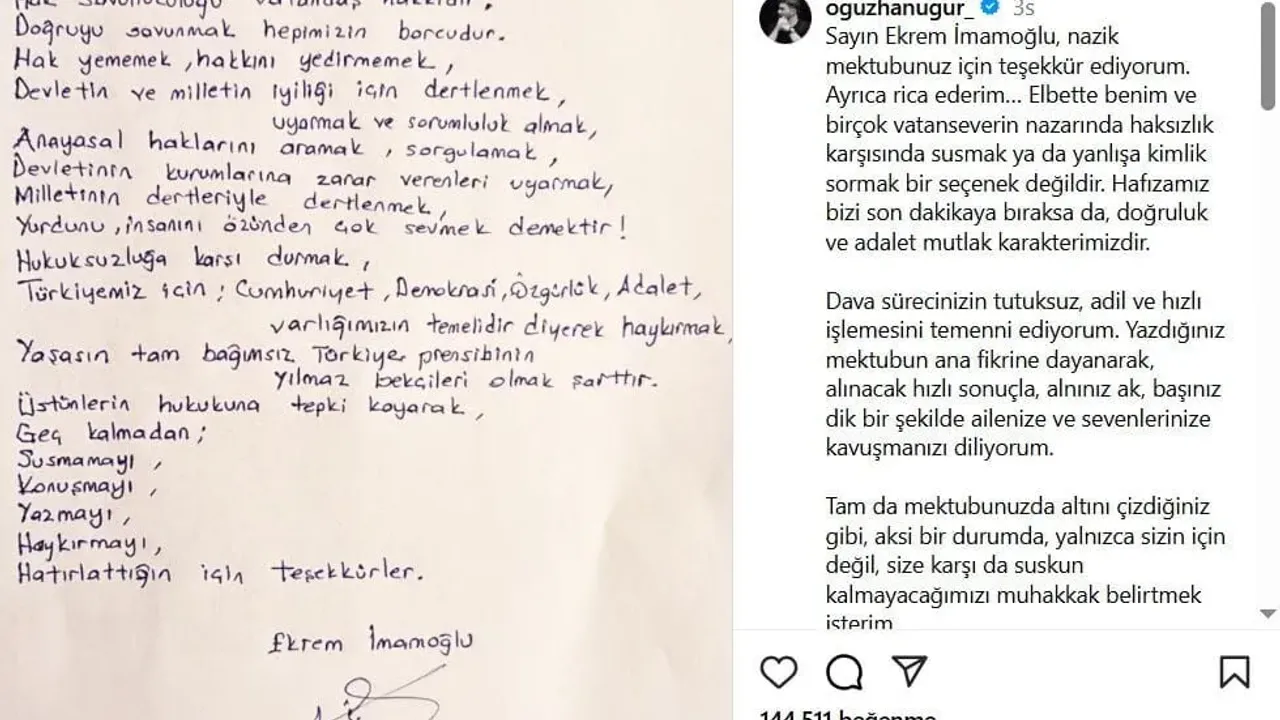 Doğruyu savunmak hepimizin borcudur.
Hak yememek, hakkını yedirmemek,
Devletin ve milletin iyiliği için dertlenmek,
uyarmak ve sorumluluk almak,
Anayasal haklarını aramak, sorgulamak,
Devletinin kurumlarına zarar verenleri uyarmak,
Milletinin dertleriyle dertlenmek,
Yurdunu, insanını özünden çok sevmek demektir!
Hukuksuzluğa karşı durmak,
Türkiyemiz için; Cumhuriyet, Demokrasi, Özgürlük, Adalet,
varlığımızın temelidir diyerek haykırmak,
Yaşasın tam bağımsız Türkiye prensibinin
yılmaz bekçileri olmak şarttır.
Üstünlerin hukukuna tepki koyarak,
Geç kalmadan;
Susmamayı,
Konuşmayı,
Yazmayı,
Haykırmayı,
Hatırlattığın için teşekkürler.
Ekrem İmamoğlu
oguzhanugur_ 3s
Sayın Ekrem İmamoğlu, nazik
mektubunuz için teşekkür ediyorum.
Ayrıca rica ederim... Elbette benim ve
birçok vatanseverin nazarında haksızlık
karşısında susmak ya da yanlışa kimlik
sormak bir seçenek değildir. Hafızamız
bizi son dakikaya bıraksa da, doğruluk
ve adalet mutlak karakterimizdir.
Dava sürecinizin tutuksuz, adil ve hızlı
işlemesini temenni ediyorum. Yazdığınız
mektubun ana fikrine dayanarak,
alınacak hızlı sonuçla, alnınız ak, başınız
dik bir şekilde ailenize ve sevenlerinize
kavuşmanızı diliyorum.
Tam da mektubunuzda altını çizdiğiniz
gibi, aksi bir durumda, yalnızca sizin için
değil, size karşı da suskun
kalmayacağımızı muhakkak belirtmek
isterim
144.511 beğenme